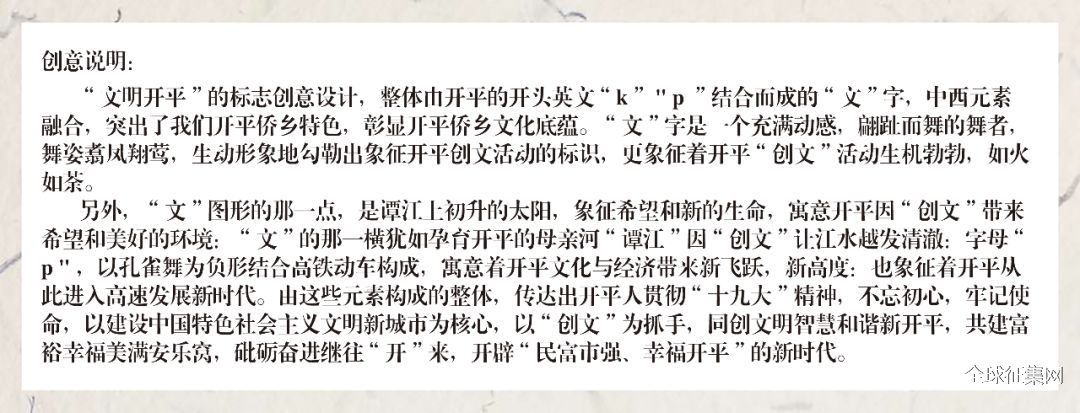 创意说明:
“文明开平”的标志创意设计，整体由开平的开头英文“k”"p”结合而成的“文”字，中西元素
融合，突出了我们开平侨乡特色，彰显开平侨乡文化底蕴。“文”字是一个充满动感，翩跹而舞的舞者，
舞姿翥凤翔莺，生动形象地勾勒出象征开平创文活动的标识，更象征着开平“创文”活动生机勃勃，如火
如荼。
另外，“文”图形的那一点，是谭江上初升的太阳，象征希望和新的生命，寓意开平因“创文”带来
希望和美好的环境；“文”的那一横犹如孕育开平的母亲河“谭江”因“创文”让江水越发清澈；字母“
p"，以孔雀舞为负形结合高铁动车构成，寓意着开平文化与经济带来新飞跃，新高度；也象征着开平从
此进入高速发展新时代。由这些元素构成的整体，传达出开平人贯彻“十九大”精神，不忘初心，牢记使
命，以建设中国特色社会主义文明新城市为核心，以“创文”为抓手，同创文明智慧和谐新开平，共建富
裕幸福美满安乐窝，砒砺奋进继往“开”来，开辟“民富市强、幸福开平”的新时代。
全球征集网